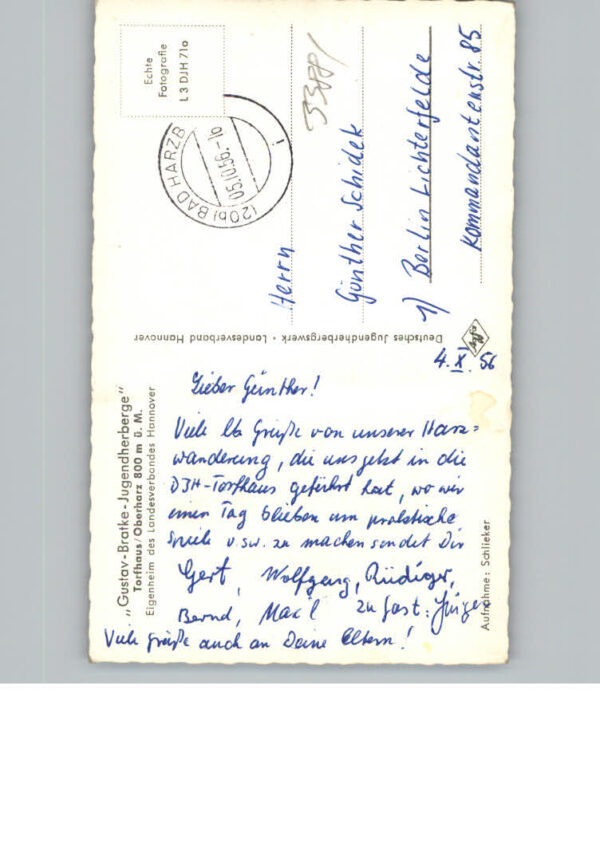 Echte
Fotografie
L 3 DJH 71a
(20b) BAD HARZB
05.10.56.-16
i
Herrn
Günther Schidek
1) Berlin Lichterfelde
Kommandantenstr. 85
Deutsches Jugendherbergswerk · Landesverband Hannover
Agfa
4. X. 56
„Gustav-Bratke-Jugendherberge"
Torfhaus/Oberharz 800 m ü. M.
Eigenheim des Landesverbandes Hannover
Lieber Günther!
Viele lb Grüße von unserer Harz=
wanderung, die uns jetzt in die
DJH-Torfhaus geführt hat, wo wir
einen Tag blieben um praktische
Spiele usw. zu machen sendet Dir
Gert, Wolfgang, Rüdiger,
Bernd, zu Gast: Jürgen
Viele Grüße auch an Deine Eltern!
Aufnahme: Schlieker